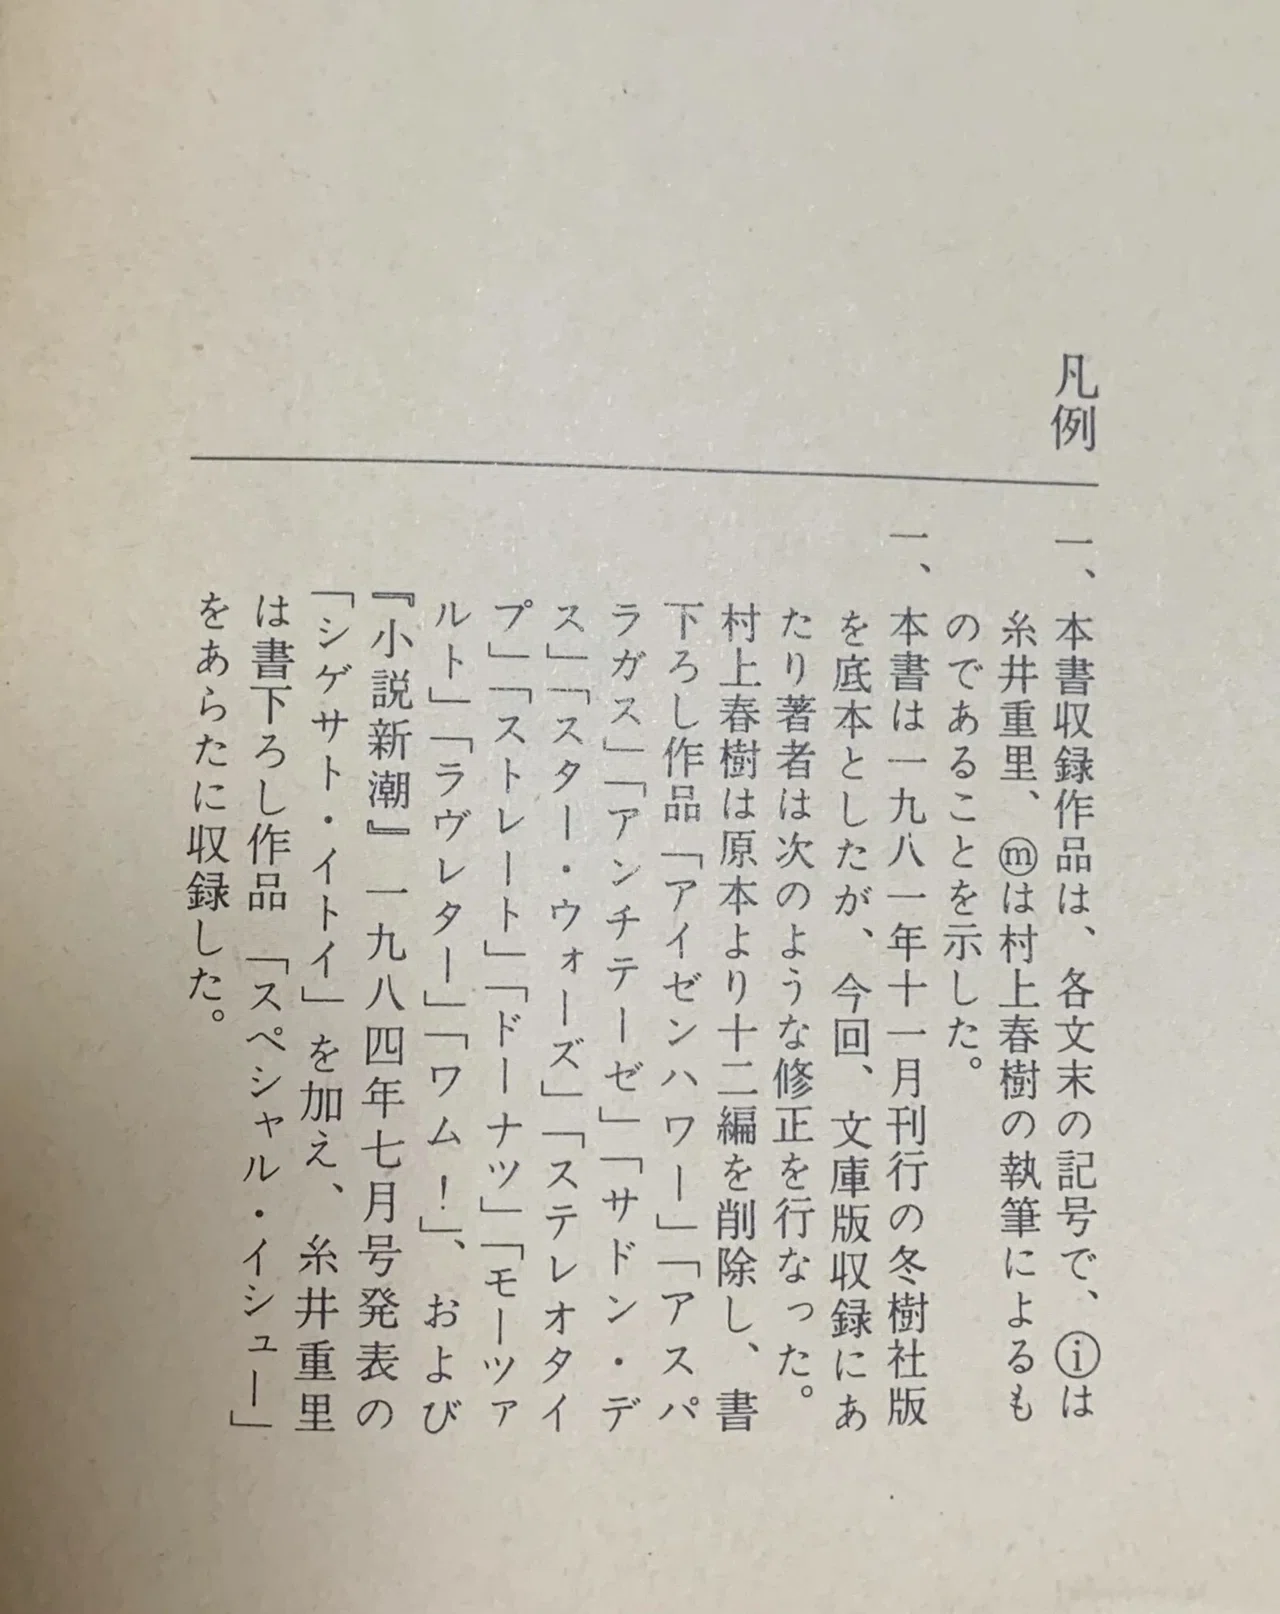 凡例
一、本書収録作品は、各文末の記号で、ⓘは
糸井重里、ⓜは村上春樹の執筆によるも
のであることを示した。
一、本書は一九八一年十一月刊行の冬樹社版
を底本としたが、今回、文庫版収録にあ
たり著者は次のような修正を行なった。
村上春樹は原本より十二編を削除し、書
下ろし作品「アイゼンハワー」「アスパ
ラガス」「アンチテーゼ」「サドン・デ
ス」「スター・ウォーズ」「ステレオタイ
プ」「ストレート」「ドーナツ」「モーツァ
ルト」「ラヴレター」「ワム！」、および
『小説新潮』一九八四年七月号発表の
「シゲサト・イトイ」を加え、糸井重里
は書下ろし作品「スペシャル・イシュー」
をあらたに収録した。